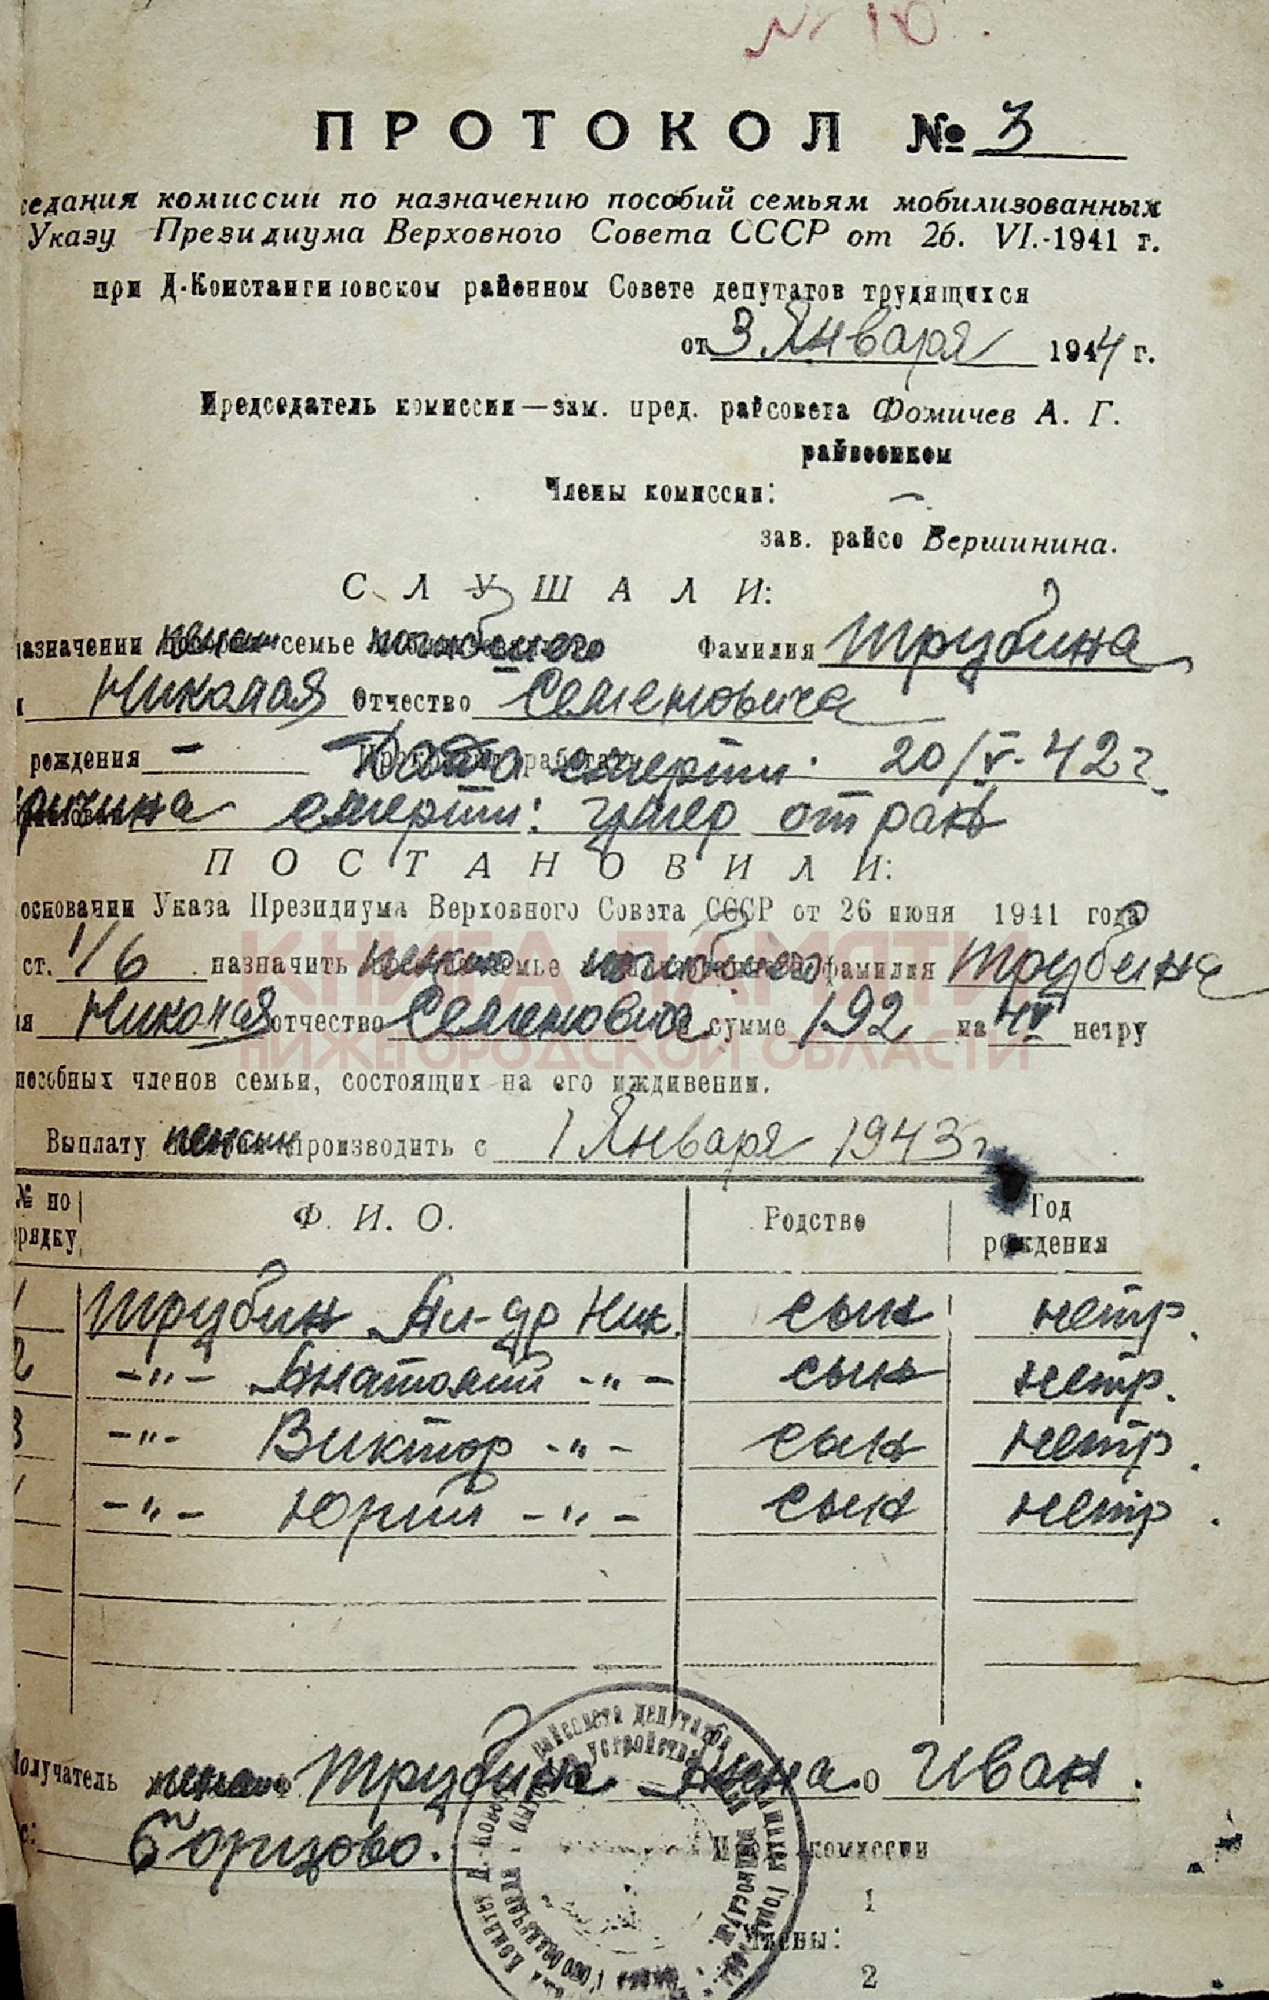 № 10.
ПРОТОКОЛ № 3
седания комиссии по назначению пособий семьям мобилизованных
Указу Президиума Верховного Совета СССР от 26. VI.-1941 г.
при Д-Константиновском районном Совете депутатов трудящихся
от 3 Января 1944 г.
Председатель комиссии — зам. пред. райсовета Фомичев А. Г.
райвоенком
Члены комиссии:
зав. райсо Вершинина.
СЛУШАЛИ:
назначении пенсии семье погибшего Фамилия Трубина
Николая Отчество Семеновича
рождения — Дата смерти. 20/V-42 г.
Причина смерти: умер от ран
ПОСТАНОВИЛИ:
основании Указа Президиума Верховного Совета СССР от 26 июня 1941 года
ст. 1/6 назначить пенсию семье погибшего фамилия Трубина
Николая отчество Семеновича сумме 192 на 4 нетру
пособных членов семьи, состоящих на его иждивении.
Выплату пенсии производить с 1 Января 1943 г.
№ по рядку Ф. И. О. Родство Год рождения
1 Трубин Ал-др Ник. сын нетр.
2 -"- Анатолий -"- сын нетр.
3 -"- Виктор -"- сын нетр.
-"- Юрий -"- сын нетр.
Получатель Трубина Анна о Иван.
с: Борисово. комиссии
1
Члены:
2
КНИГА ПАМЯТИ
НИЖЕГОРОДСКОЙ ОБЛАСТИ